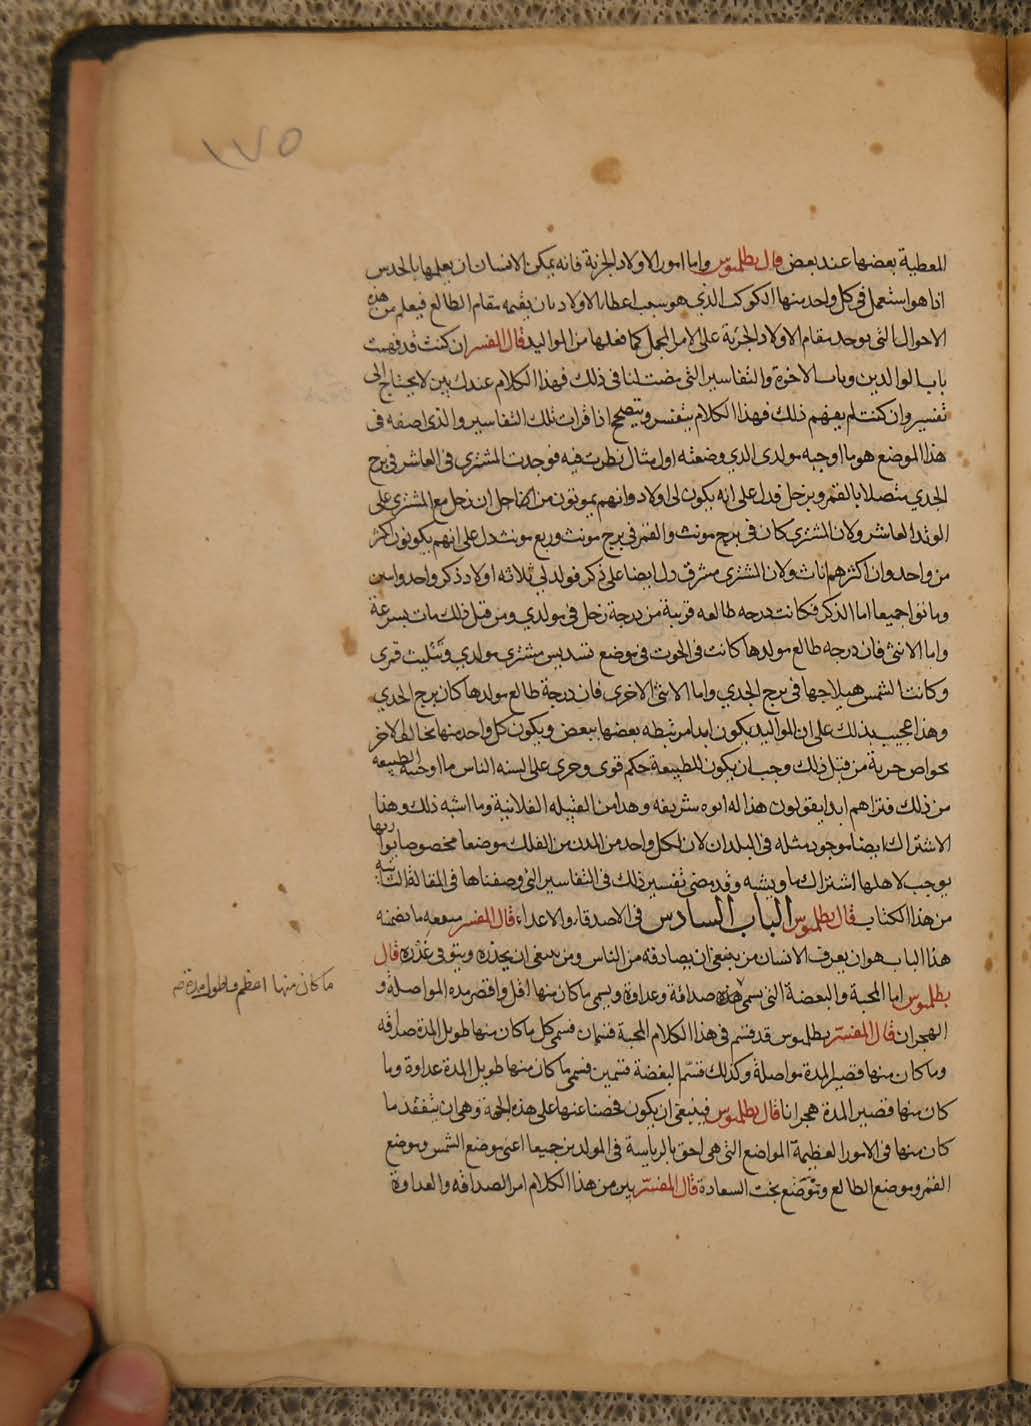 ١٧٥
المعطية بعضها عند بعض قال بطلميوس واما امور الاولاد الجزية فانه يمكن الانسان ان يعلمها بالحدس
اذا هو استعمل فى كل واحد منها الكوكب الذي هو سبب اعطا الاولاد بان يقيمه مقام الطالع فيعلم من هذه
الاحوال التى توجد مقام الاولاد الجزية على الامر المجمل كما فعلها من المواليد قال المفسر ان كنت قد فهمت
باب الوالدين وباب الاخوة والتفاسير التى مضت لنا فى ذلك فهذا الكلام عندك بين لا يحتاج الى
تفسير وان كنت لم تفهم ذلك فهذا الكلام يتفسر ويتضح اذا قرات تلك التفاسير والذى اصفه فى
هذا الموضع هو ما اوجبه مولدى الذي وضعته اول مثال نظرت فيه فوجدت المشترى فى العاشر فى برج
الجدي متصلا بالقمر وبزحل فدل على انه يكون لى اولاد وانهم يموتون من اجل ان زحل مع المشترى على
الوتد العاشر ولان المشترى كان فى برج مونث والقمر فى برج مونث وربع مونث دل على انهم يكونون اكثر
من واحد وان اكثرهم اناث ولان المشترى مشرق دل ايضا على ذكر فولد لى ثلاثه اولاد ذكر واحد وانثيين
وماتوا جميعا اما الذكر فكانت درجه طالعه قريبة من درجة زحل فى مولدي ومن قبل ذلك مات بسرعة
واما الانثى فان درجه طالع مولدها كانت فى الحوت فى موضع تسديس مشترى مولدي وتثليث قمرى
وكانت الشمس هيلاجها فى برج الجدي واما الانثى الاخرى فان درجة طالع مولدها كان برج الجدي
وهذا عجيب يدلك على ان المواليد يكون ابدا مرتبطه بعضها ببعض ويكون كل واحد منها يخالط الاخر
بخواص جزية من قبل ذلك وجب ان يكون للطبيعة حكم قوى وجرى على السنه الناس ما اوجبه الطبيعه
من ذلك فتراهم ابدا يقولون هذا له ابوه شريفه وهذا من القبيله الفلانية وما اشبه ذلك وهذا
الاشتراك ايضا موجود مثله فى البلدان لان لكل واحد من المدن من الفلك موضعا مخصوصا بوا
يوجب لاهلها اشتراك ما ويشبه وقد مضى تفسير ذلك فى التفاسير التى وصفناها فى المقالة الثانيه
من هذا الكتاب قال بطلميوس الباب السادس فى الاصدقاء والاعداء قال المفسر منفعه ما تضمنه
هذا الباب هو ان يعرف الانسان من ينبغى ان يصادقه من الناس ومن ينبغى ان يحذره ويتوقى غدره قال
بطلميوس اما المحبة والبغضة التى يسمى هذه صداقة وعداوة ويسمى ما كان منها اقل واقصر مده المواصلة و
ما كان منها اعظم واطول مدة صح
الهجران قال المفسر بطلميوس قد قسم فى هذا الكلام المحبة قسمان فسمى كل ما كان منها طويل المدة صداقه
وما كان منها قصير المدة مواصلة وكذلك قسم البغضة قسمين فسمى ما كان منها طويل المدة عداوة وما
كان منها قصير المدة هجرانا قال بطلميوس فينبغى ان يكون فحصنا عنها على هذه الجهة وهى ان يتفقد ما
كان منها فى الامور العظيمة المواضع التى هى احق بالرياسة فى المولدين جميعا اعنى موضع الشمس وموضع
القمر وموضع الطالع وموضع بخت السعادة قال المفسر يبين من هذا الكلام امر الصداقه والعداوة